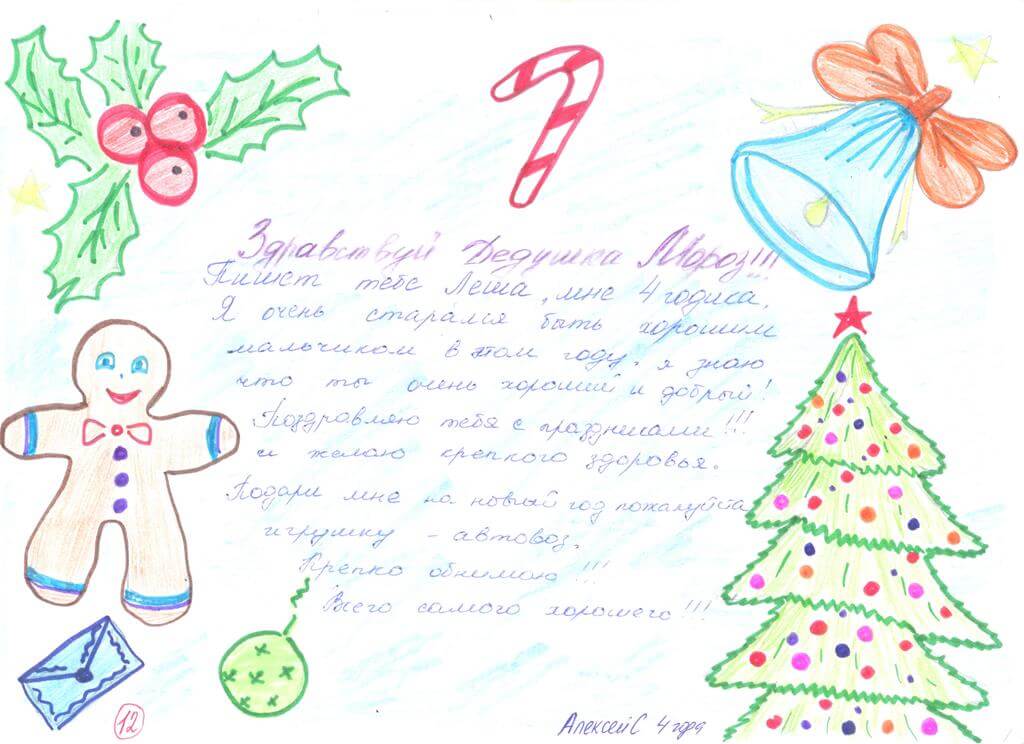 Здравствуй Дедушка Мороз!!!
Пишет тебе Леша, мне 4 годика.
Я очень старался быть хорошим
мальчиком в этом году, я знаю
что ты очень хороший и добрый!
Поздравляю тебя с праздниками!!!
и желаю крепкого здоровья.
Подари мне на новый год пожалуйста
игрушку - автовоз.
Крепко обнимаю!!!
Всего самого хорошего!!!
Алексей С 4 года
12